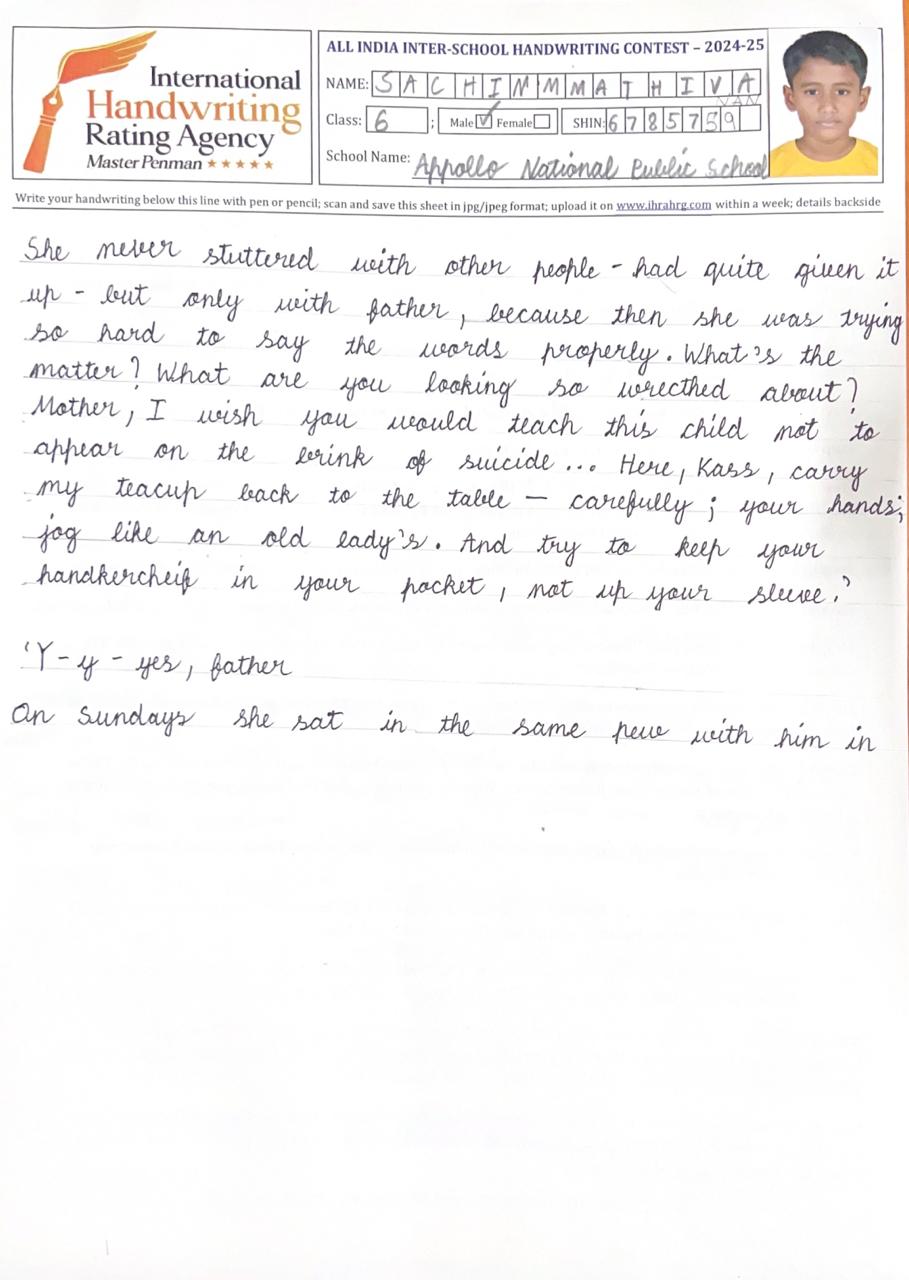 International
Handwriting
Rating Agency
Master Penman ★★★★★
ALL INDIA INTER-SCHOOL HANDWRITING CONTEST – 2024-25
NAME: SACHINMMATHIVA
NAN
Class: 6 ; Male ✓ Female SHIN: 6785759
School Name: Appollo National Public School
Write your handwriting below this line with pen or pencil; scan and save this sheet in jpg/jpeg format; upload it on www.ihrahrg.com within a week; details backside
She never stuttered with other people - had quite given it
up - but only with father, because then she was trying
so hard to say the words properly. What's the
matter? What are you looking so wrecthed about?
Mother, I wish you would teach this child not to
appear on the brink of suicide... Here, Kass, carry
my teacup back to the table – carefully; your hands;
jog like an old lady's. And try to keep your
handkercheif in your pocket, not up your sleeve.'
'Y-y-yes, father
On Sundays she sat in the same pew with him in